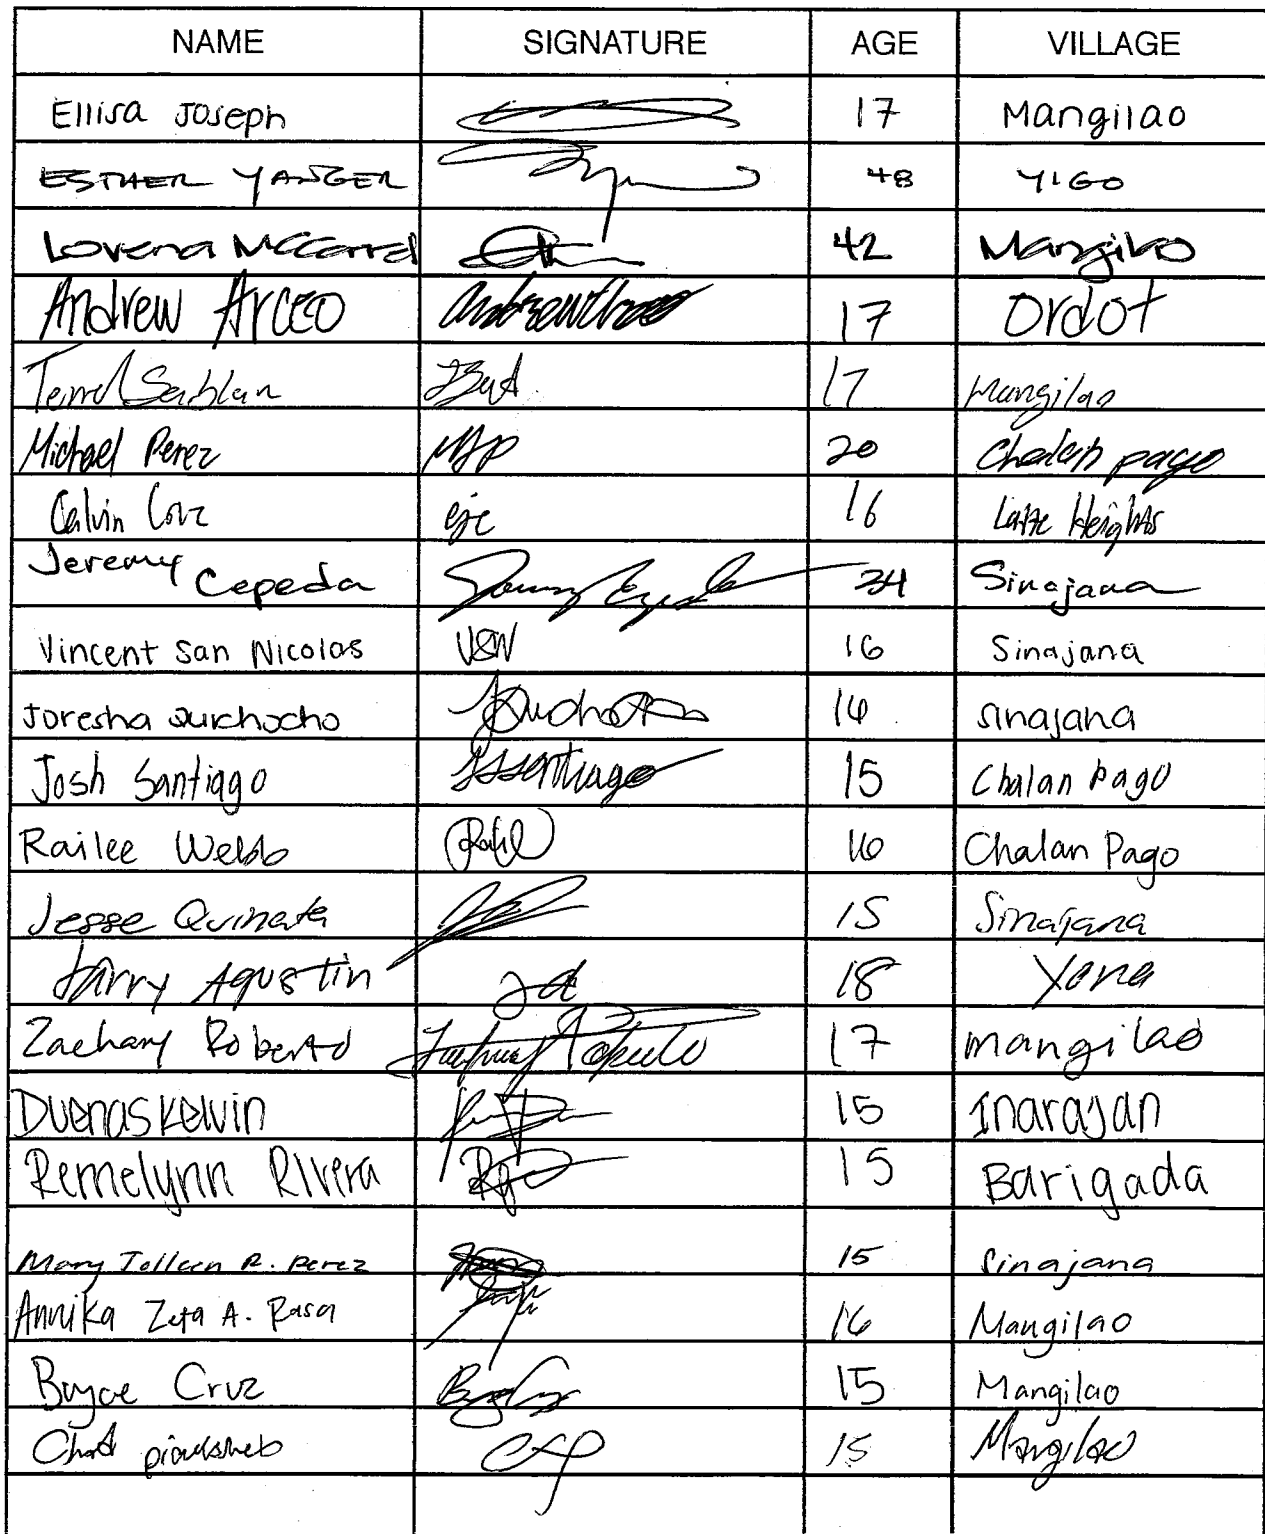 NAME SIGNATURE AGE VILLAGE
Ellisa Joseph 17 Mangilao
ESTHER YANGER 48 YIGO
Lovena McCarrel 42 Mangilao
Andrew Arceo 17 Ordot
Sablan 17 Mangilao
Michael Perez MJP 20 Chalan pago
Calvin Cruz cjc 16 Latte Heights
Jeremy Cepeda 34 Sinajana
Vincent San Nicolas VSN 16 Sinajana
Joresha Quichocho 16 sinajana
Josh Santiago JSSantiago 15 Chalan Pago
Railee Webb 16 Chalan Pago
Jesse Quinata 15 Sinajana
Agustin 18 Yona
Zachary Roberto 17 mangilao
Duenas Kelvin 15 Inarajan
Remelynn Rivera 15 Barigada
Mary Jolleen R. Perez 15 Sinajana
Annika Zeta A. Rasa 16 Mangilao
Boyce Cruz 15 Mangilao
15 Mangilao